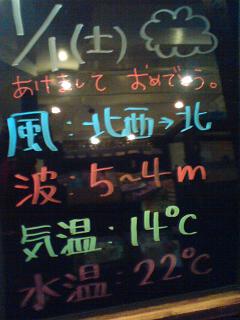 1/1(土)
あけまして おめでとう。
風:北西→北
波:5~4m
気温:14℃
水温:22℃